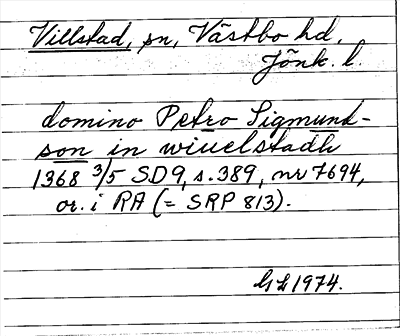 Villstad, sn, Västbo hd,
Jönk. l.
domino Petro Sigmund-
son in wiuelstadh
1368 3/5 SD9, s. 389, nr 7694,
or. i RA (= SRP 813).
GL 1974.